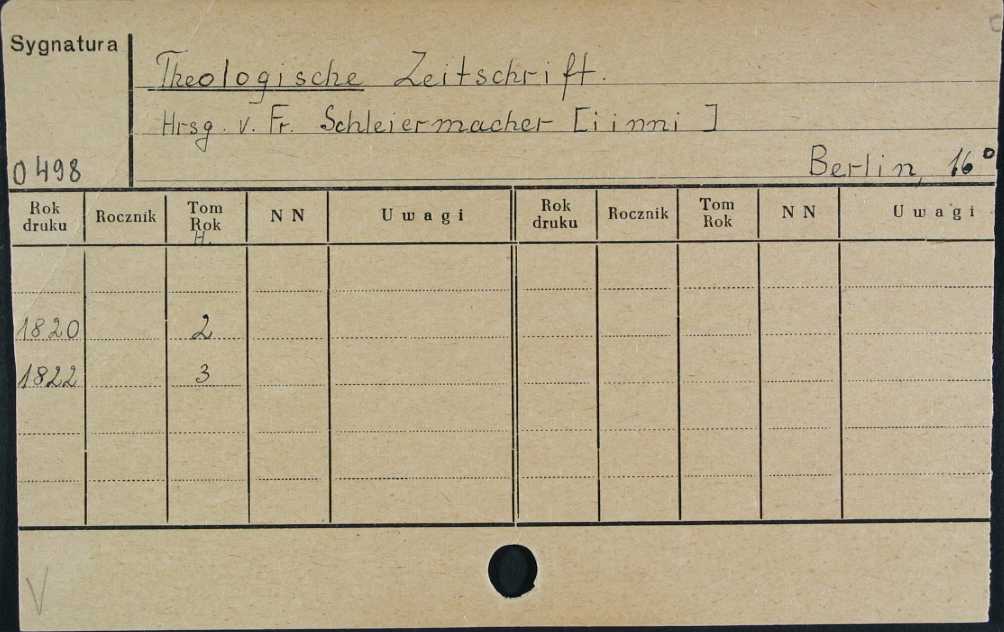 Sygnatura
Theologische Zeitschrift.
Hrsg. v. Fr. Schleiermacher [i inni]
0498
Berlin, 16°
Rok druku Rocznik Tom Rok H. NN Uwagi Rok druku Rocznik Tom Rok NN Uwagi
1820 2
1822 3
V